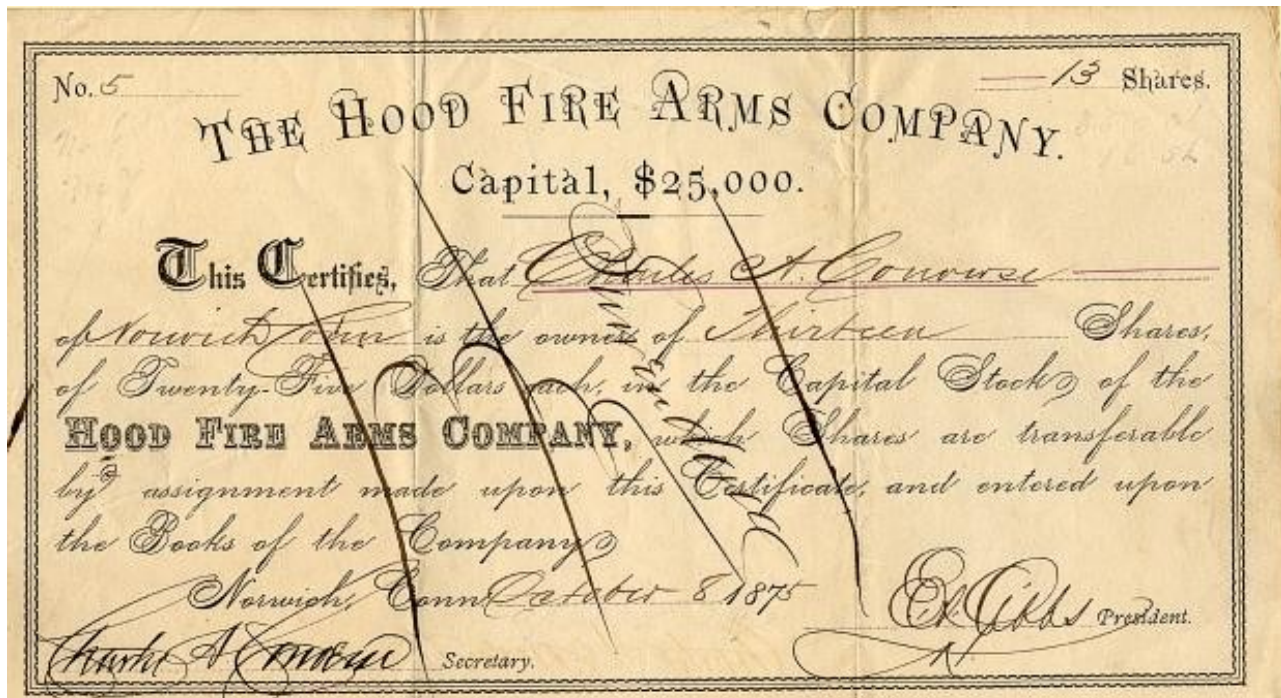 No. 5
13 Shares.
THE HOOD FIRE ARMS COMPANY.
Capital, $25,000.
This Certifies, That Charles A. Converse
of Norwich Conn is the owner of Thirteen Shares,
of Twenty-Five Dollars each, in the Capital Stock of the
HOOD FIRE ARMS COMPANY, which Shares are transferable
by assignment made upon this Certificate, and entered upon
the Books of the Company
Norwich, Conn October 8 1875
Charles A Converse Secretary.
Gibbs President.